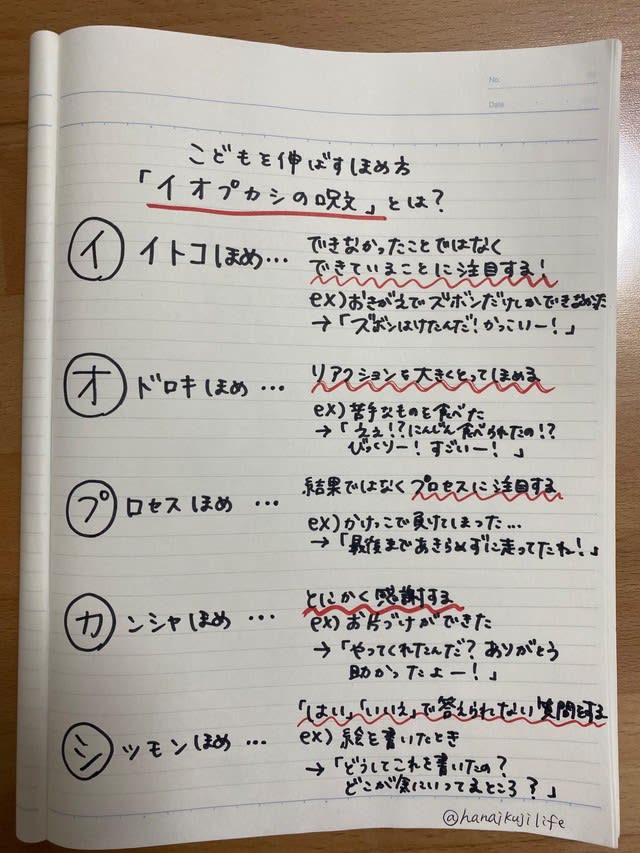 No.
Date
こどもを伸ばすほめ方
「イオプカシの呪文」とは?
イ イトコほめ… できなかったことではなく
できていることに注目する!
ex)おきがえでズボンだけしかできなかった
→「ズボンはけたんだ!かっこいー!」
オ ドロキほめ … リアクションを大きくとってほめる
ex)苦手なものを食べた
→「ええ!?にんじん食べられたの!?
びっくりー!すごいー!」
プ ロセスほめ … 結果ではなくプロセスに注目する
ex)かけっこで負けてしまった…
→「最後まであきらめずに走ってたね!」
カ ンシャほめ … とにかく感謝する
ex)お片づけができた
→「やってくれたんだ?ありがとう
助かったよー!」
シ ツモンほめ … 「はい」「いいえ」で答えられない質問をする
ex)絵を書いたとき
→「どうしてこれを書いたの?
どこが気にいってるところ?」
@hanajikujilife